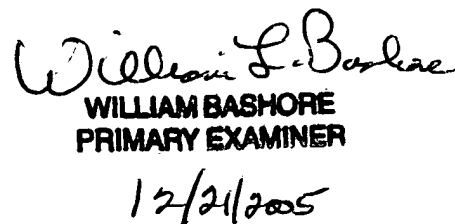 William L. Bashore
WILLIAM BASHORE
PRIMARY EXAMINER
12/21/2005